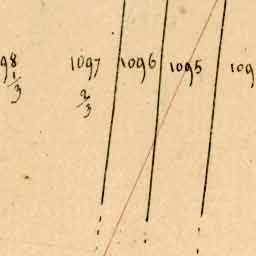 98 1097 1096 1095 109
1/3 2/3